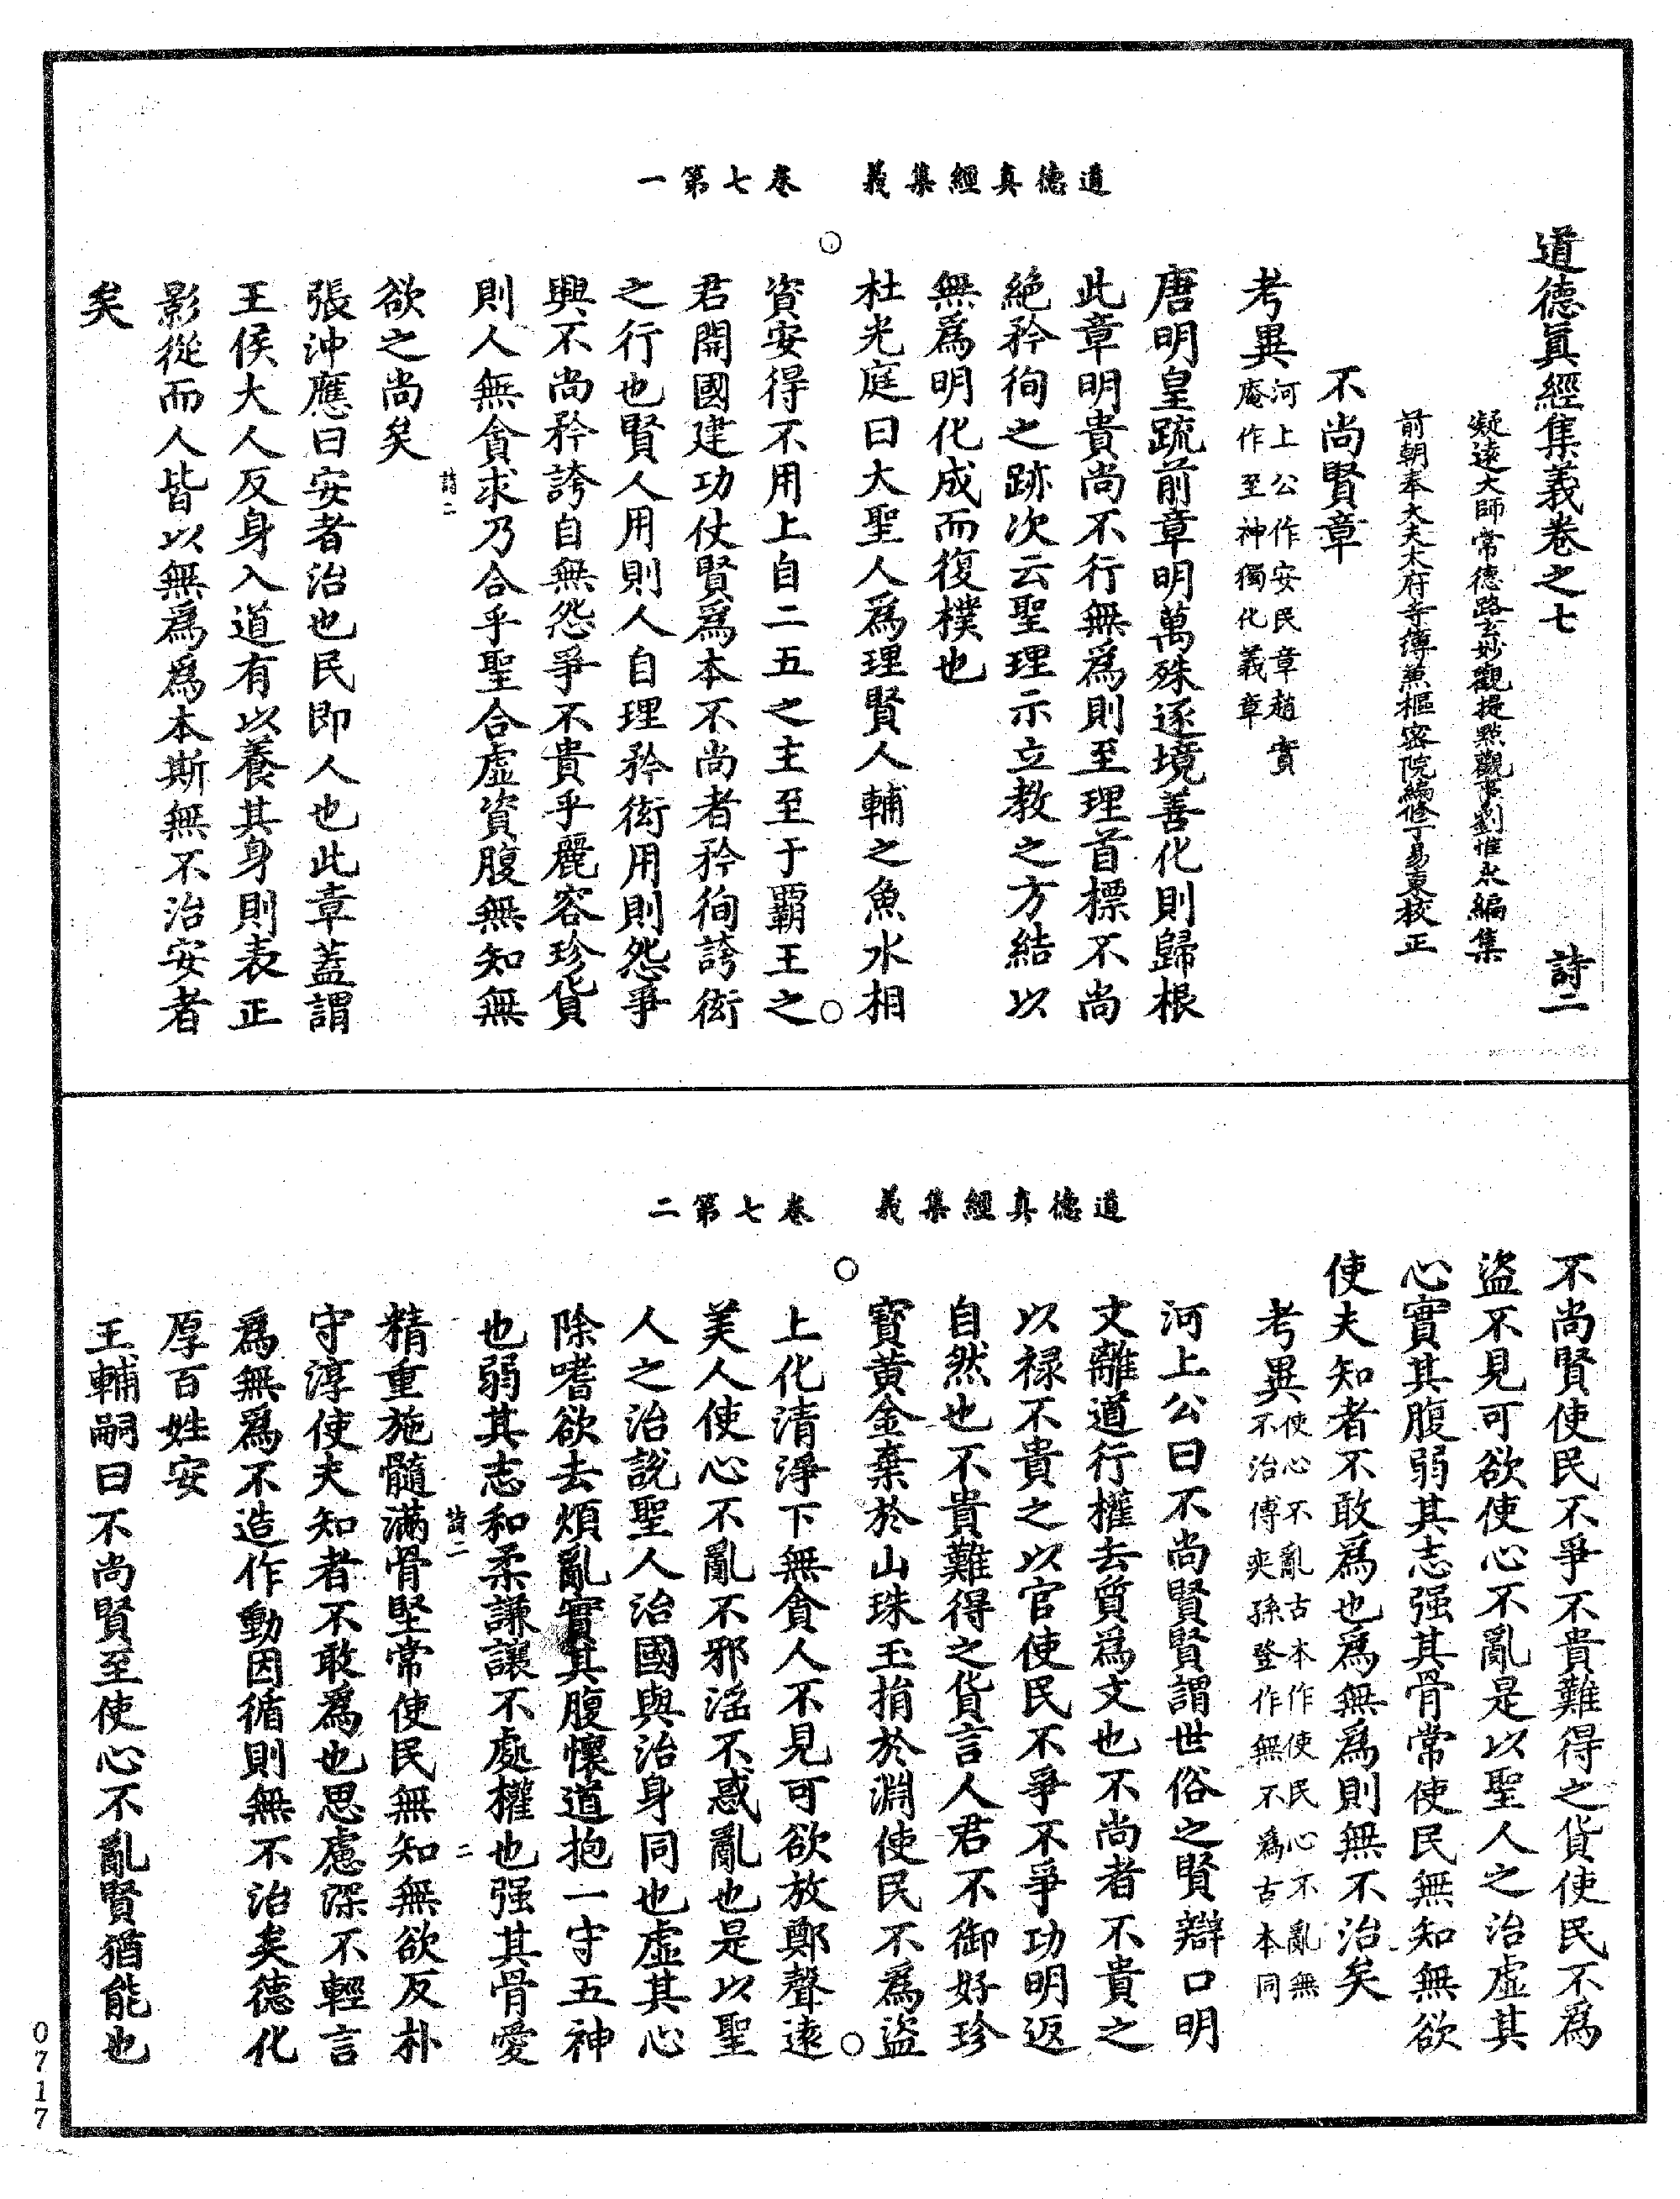 道德真經集義　卷七第一
道德眞經集義卷之七　詩二
凝遠大師常德路玄妙觀提點觀事劉惟永編集
前朝奉大夫太府寺簿兼樞密院編修丁易東校正
不尚賢章
考異河上公作安民章趙實
庵作至神獨化義章
唐明皇疏前章明萬殊逐境善化則歸根
此章明貴尚不行無爲則至理首標不尚
絕矜徇之跡次云聖理示立教之方結以
無爲明化成而復樸也
杜光庭曰大聖人爲理賢人輔之魚水相
資安得不用上自二五之主至于霸王之
君開國建功仗賢爲本不尚者矜徇誇衒
之行也賢人用則人自理矜衒用則怨爭
興不尚矜誇自無怨爭不貴乎麗容珍貨
則人無貪求乃合乎聖合虛資腹無知無
詩二
欲之尚矣
張沖應曰安者治也民即人也此章蓋謂
王侯大人反身入道有以養其身則表正
影從而人皆以無爲爲本斯無不治安者
矣
道德真經集義　卷七第二
不尚賢使民不爭不貴難得之貨使民不爲
盜不見可欲使心不亂是以聖人之治虛其
心實其腹弱其志强其骨常使民無知無欲
使夫知者不敢爲也爲無爲則無不治矣
考異使心不亂古本作使民心不亂無
不治傅奕孫登作無不爲古本同
河上公曰不尚賢賢謂世俗之賢辯口明
文離道行權去質爲文也不尚者不貴之
以祿不貴之以官使民不爭不爭功明返
自然也不貴難得之貨言人君不御好珍
寳黃金棄於山珠玉捐於淵使民不爲盜
上化清淨下無貪人不見可欲放鄭聲遠
美人使心不亂不邪淫不惑亂也是以聖
人之治說聖人治國與治身同也虛其心
除嗜欲去煩亂實其腹懷道抱一守五神
也弱其志和柔謙讓不處權也强其骨愛
詩二　二
精重施髓滿骨堅常使民無知無欲反朴
守淳使夫知者不敢爲也思慮深不輕言
爲無爲不造作動因循則無不治矣德化
厚百姓安
王輔嗣曰不尚賢至使心不亂賢猶能也
0717